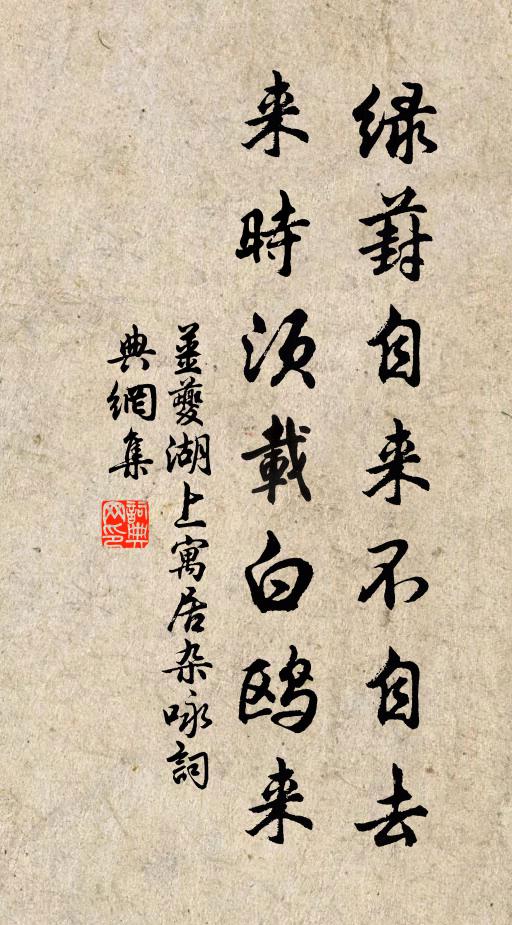 绿葑自来不自去
来時须載白鸥来
姜夔湖上寓居杂咏詞
典網集
詞典
网印